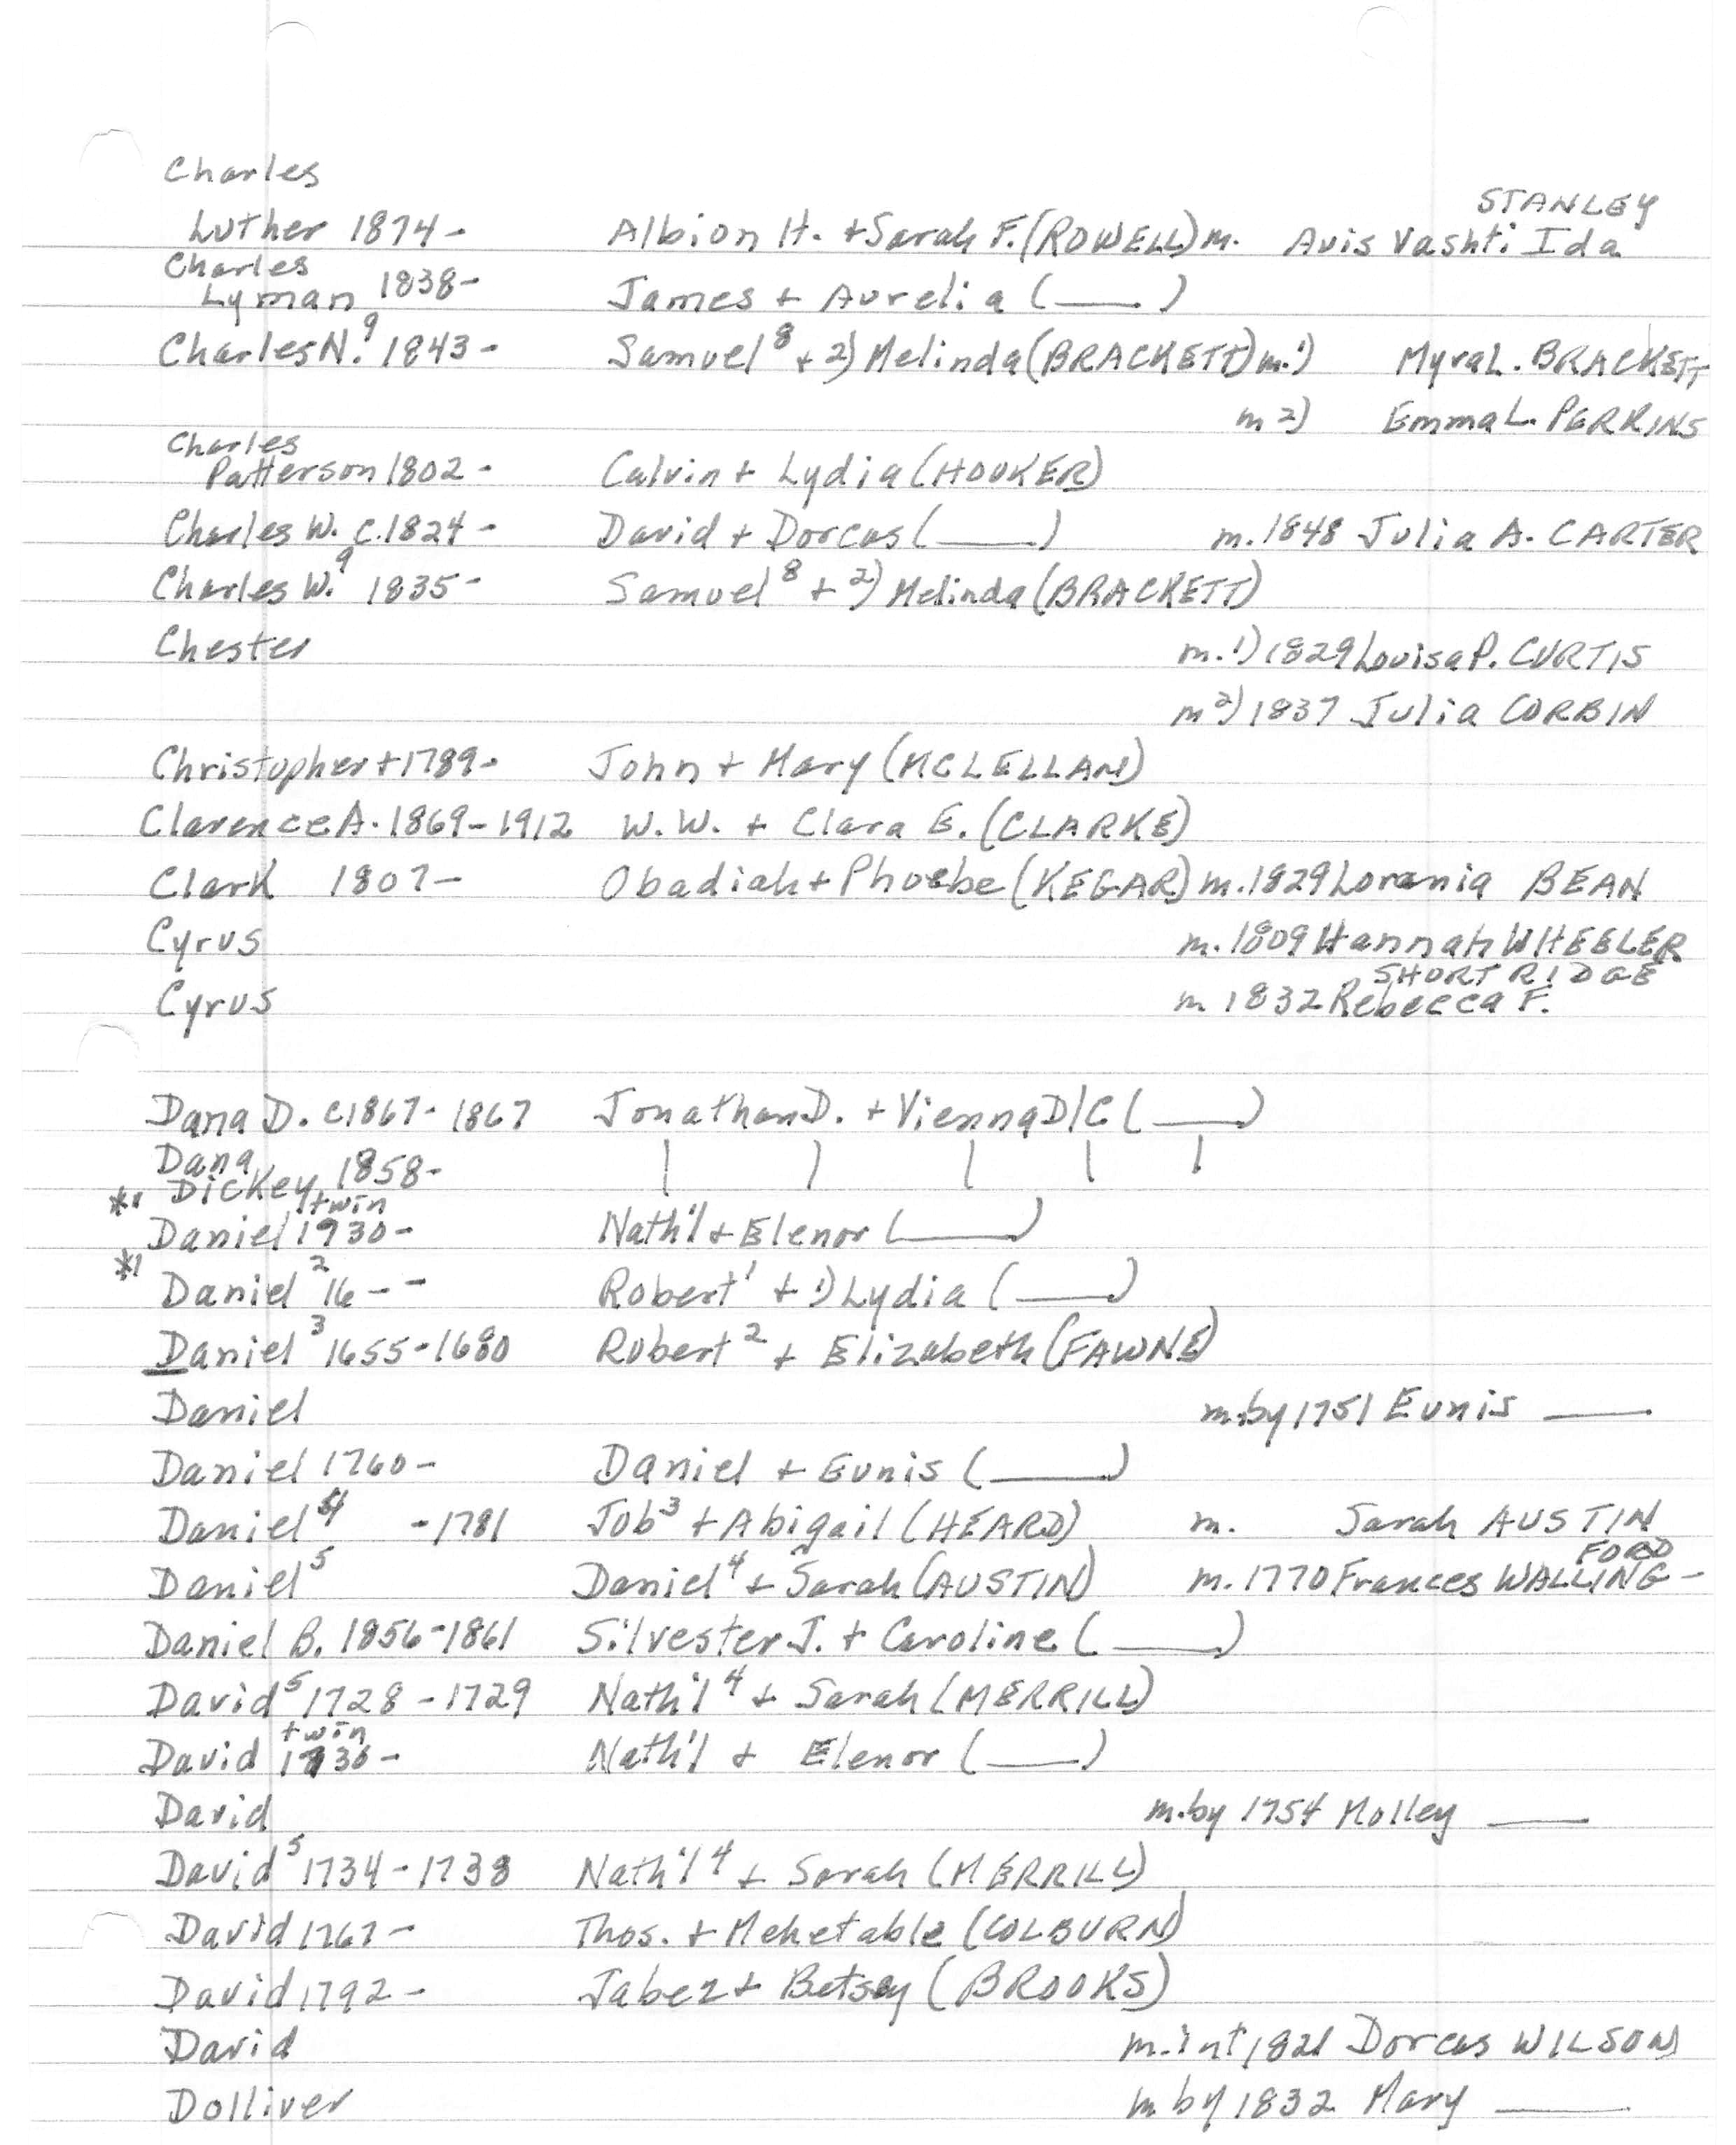 Charles
STANLEY
Luther 1874- Albion H. + Sarah F. (ROWELL) m. Avis Vashti Ida
Charles
Lyman 1838- James + Aurelia ( ___ )
Charles N.⁹ 1843- Samuel⁸ + 2) Melinda (BRACKETT) m. 1) Myra L. BRACKETT
m 2) Emma L. PERKINS
Charles
Patterson 1802- Calvin + Lydia (HOUKER)
Charles W. c.1824- David + Dorcas ( ___ ) m. 1848 Julia A. CARTER
Charles W.⁹ 1835- Samuel⁸ + 2) Melinda (BRACKETT)
Chester m. 1) 1829 Louisa P. CURTIS
m 2) 1837 Julia CORBIN
Christopher + 1789- John + Mary (MCLELLAN)
Clarence A. 1869-1912 W.W. + Clara E. (CLARKE)
Clark 1807- Obadiah + Phoebe (KEGAR) m. 1829 Lorania BEAN
Cyrus m. 1809 Hannah WHEELER
SHORTRIDGE
Cyrus m 1832 Rebecca F.
Dana D. c1867-1867 Jonathan D. + Vienna D/C ( ___ )
Dana
Dickey 1858- | | | | |
*' twin
Daniel 1930- Nath'l + Elenor ( ___ )
*'
Daniel² 16-- Robert¹ + 1) Lydia ( ___ )
Daniel³ 1655-1680 Robert² + Elizabeth (FAWNE)
Daniel m. by 1751 Eunis ___
Daniel 1760- Daniel + Eunis ( ___ )
Daniel⁴ -1781 Job³ + Abigail (HEARD) m. Sarah AUSTIN
FORD
Daniel⁵ Daniel⁴ + Sarah (AUSTIN) m. 1770 Frances WALLING-
Daniel B. 1856-1861 Silvester J. + Caroline ( ___ )
David⁵ 1728-1729 Nath'l⁴ + Sarah (MERRILL)
twin
David 1730- Nath'l + Elenor ( ___ )
David m. by 1754 Molley ___
David⁵ 1734-1738 Nath'l⁴ + Sarah (MERRILL)
David 1767- Thos. + Mehetable (COLBURN)
David 1792- Jabez + Betsey (BROOKS)
David m. int 1821 Dorcas WILSON
Dolliver m by 1832 Mary ___